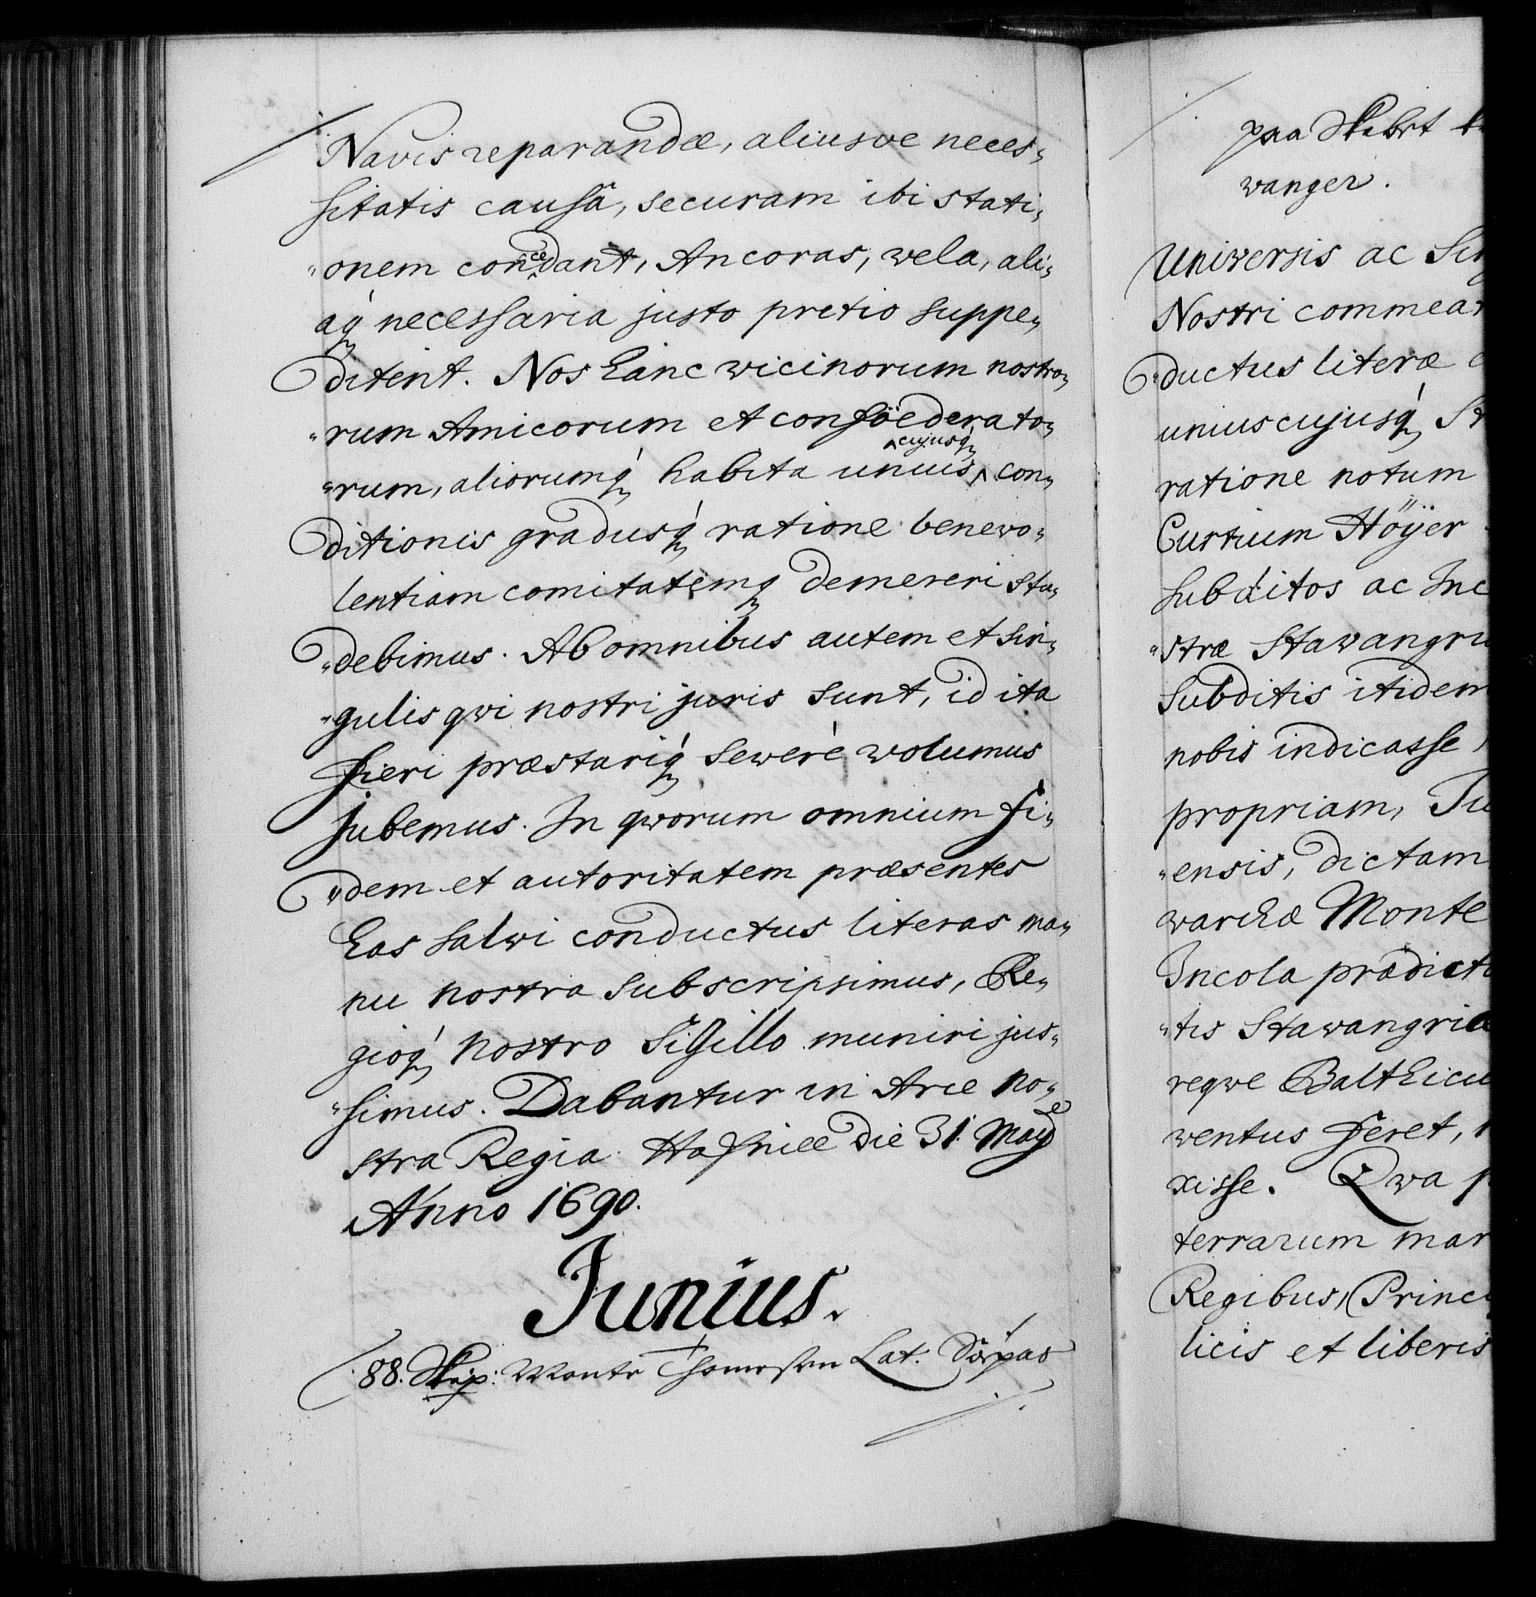 Navis reparandæ, aliusve neces„
sitatis causâ, securam ibi stati„
„onem concedant, Ancoras, vela, ali„
aq́ necessaria justo pretio suppe„
ditent. Nos hanc vicinorum nostro„
„rum Amicorum et confœderato„
„rum, aliorumq́ habita uniuscujusq́ con„
ditionis gradusq́ ratione benevo„
lentiam comitatemq demereri stu„
„debimus. Ab omnibus autem et sin„
„gulis qvi nostri juris sunt, id ita
fieri præstariq́ severè volumus
jubemus. In qvorum omnium fi„
„dem et autoritatem præsentes
has salvi conductus literas ma„
nu nostra subscripsimus, Re„
gioq́ nostro Sigillo muniri jus„
„simus. Dabantur in Arce no„
stra Regia Hafniæ die 31. Maÿ
Anno 1690.
Junius.
88. Skip: Monte Thomessen Lat. Söepas
paa Skibet
wanger.
Universis ac Sin
Nostri commeat
„ductus literæ
uniuscujusq́ St
ratione notum
Curtium Höÿer
Subditos ac Inc
„stræ Stavangri
Subditis itidem
nobis indicasse
propriam, Tu
„ensis, dictam
warchæ Monte
Incola prædict
„tis Stavangria
reqve Balthicu
ventus feret,
xisse. Qva p
terrarum mar
Regibus, Princi
licis et liberis